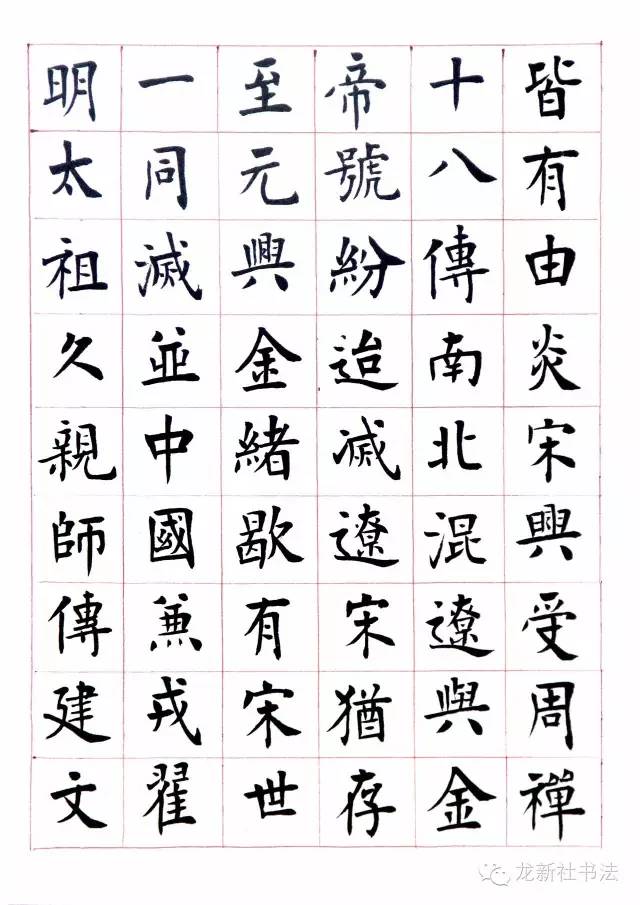 皆有由炎宋興受周禪
十八傳南北混遼與金
帝號紛迨滅遼宋猶存
至元興金緒歇有宋世
一同滅並中國兼戎翟
明太祖久親師傳建文
龙新社书法